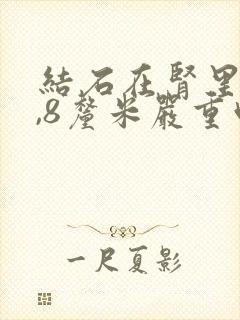 結石在腎里
,8釐米嚴重
一尺夏影